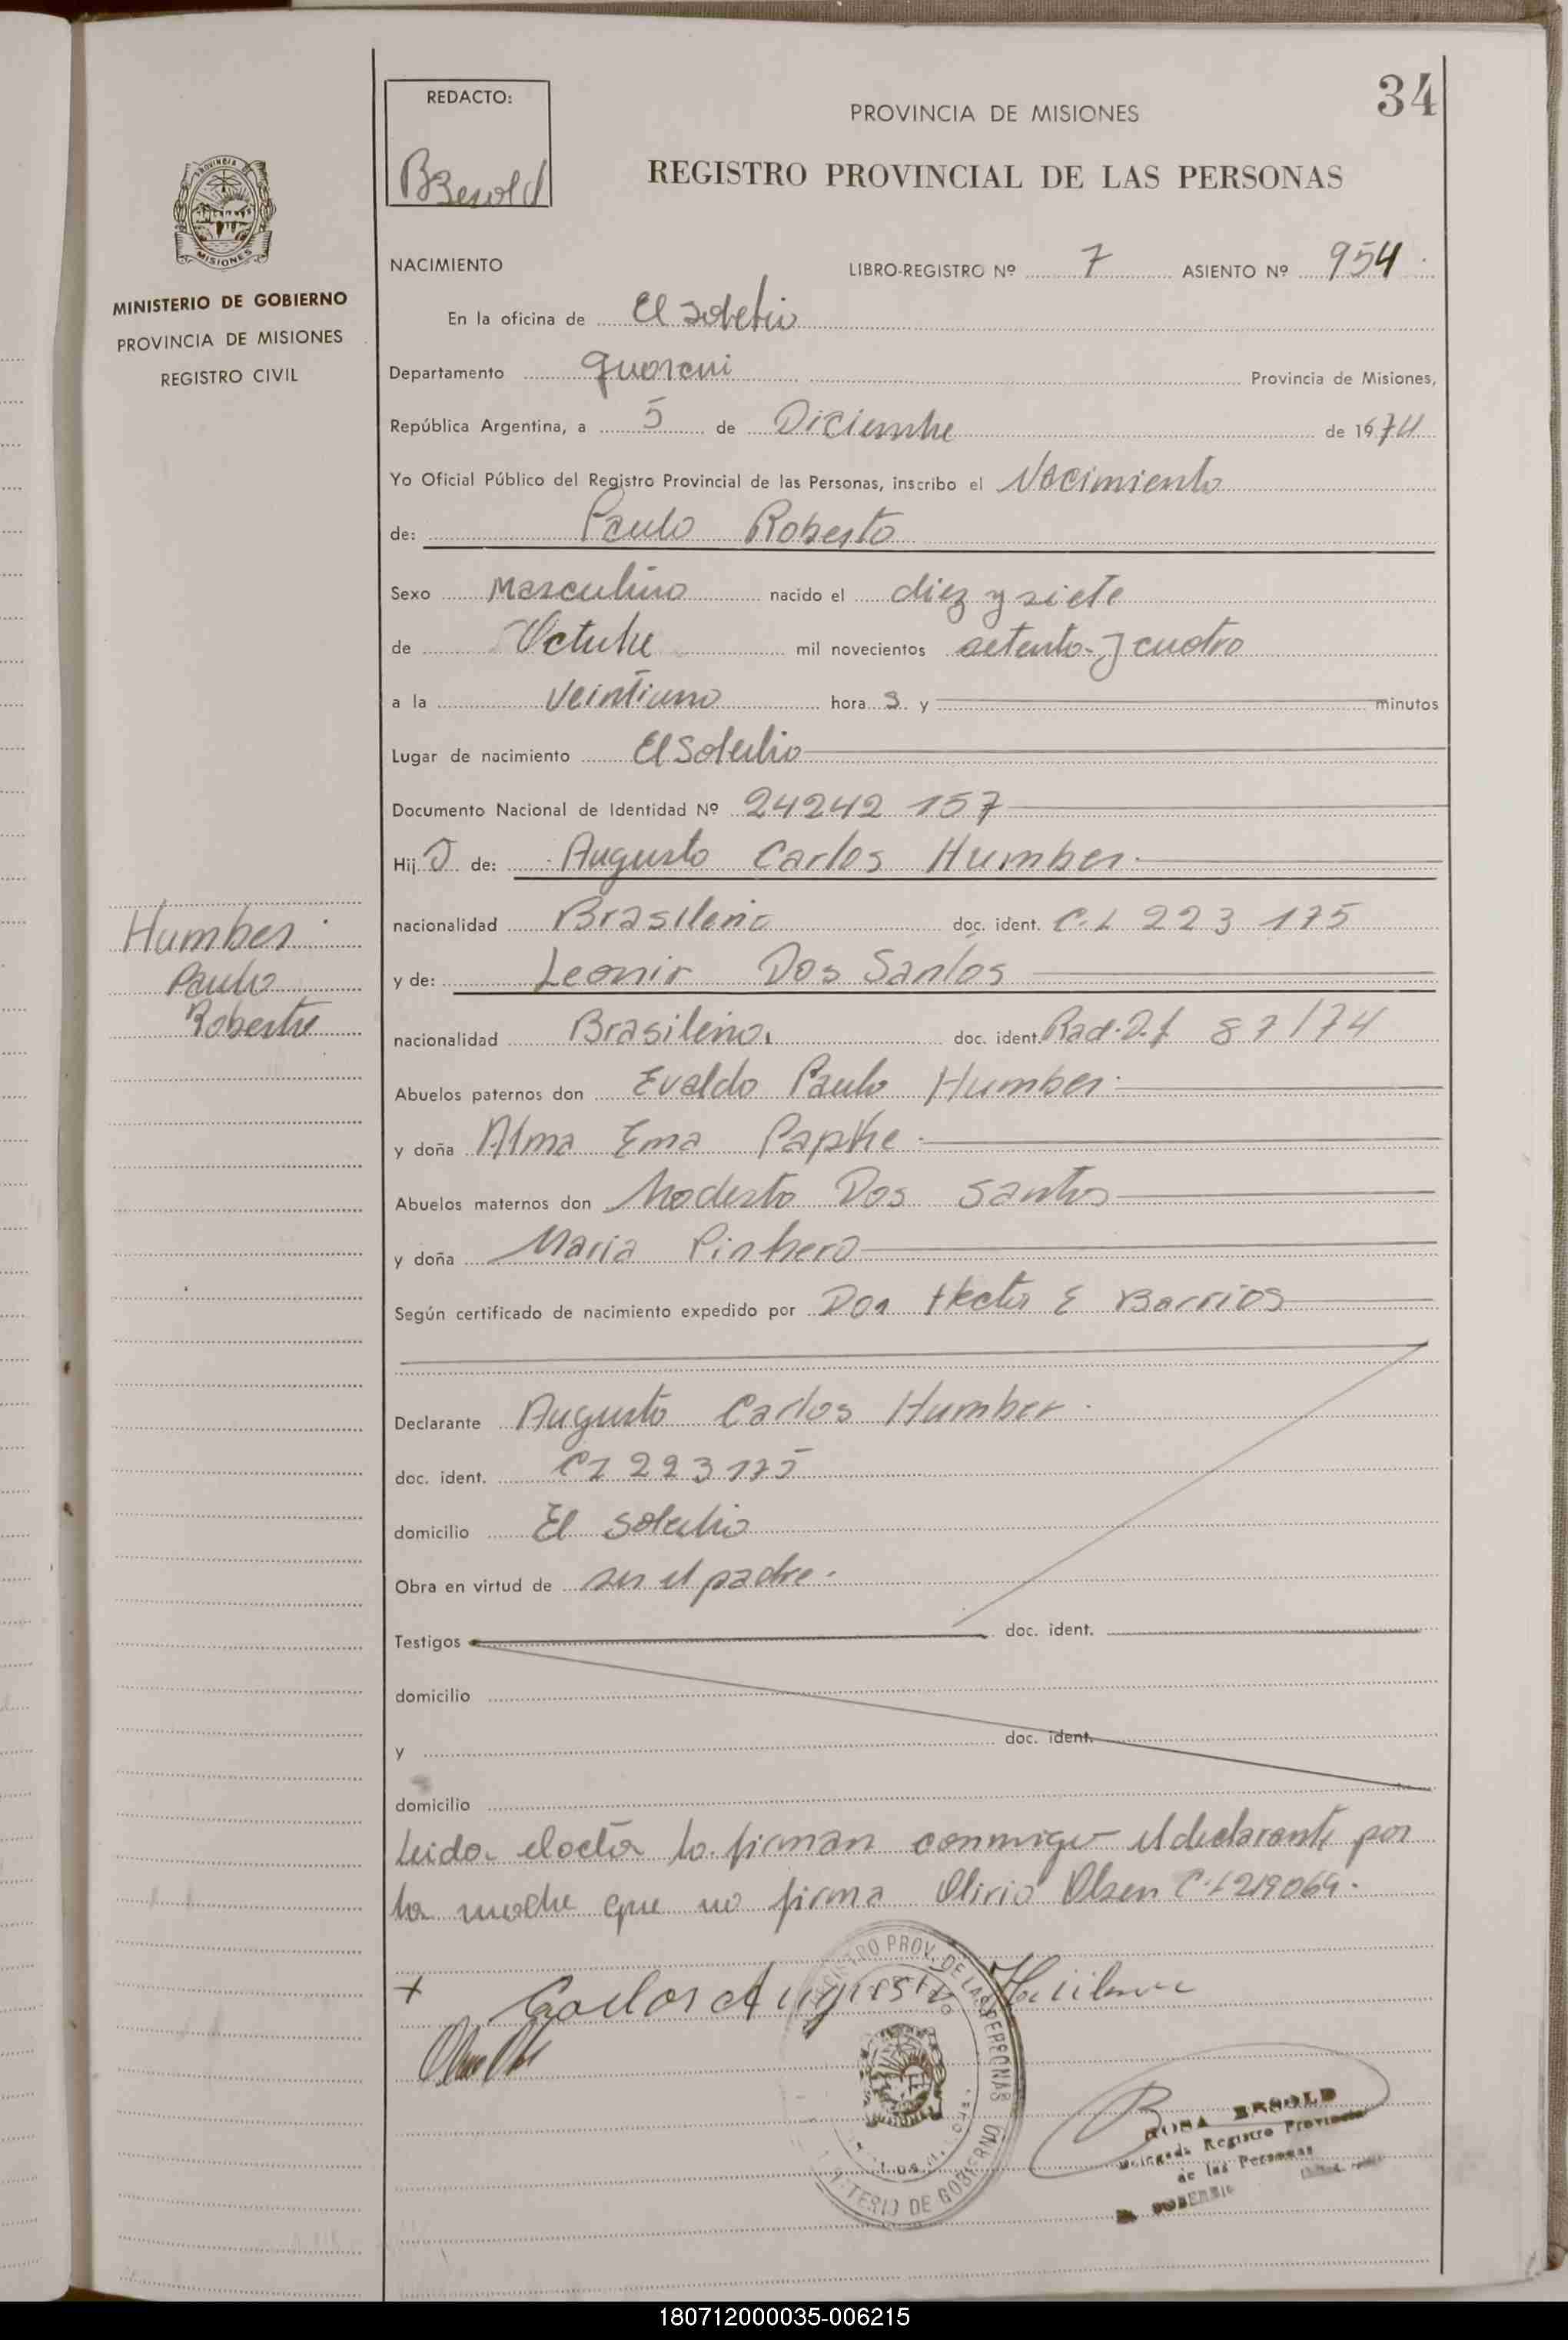 34
REDACTO:
BBesold
PROVINCIA DE MISIONES
REGISTRO PROVINCIAL DE LAS PERSONAS
PROVINCIA
MISIONES
MINISTERIO DE GOBIERNO
PROVINCIA DE MISIONES
REGISTRO CIVIL
NACIMIENTO LIBRO-REGISTRO Nº 7 ASIENTO Nº 954
En la oficina de El Soberbio
Departamento Guarani Provincia de Misiones,
República Argentina, a 5 de Diciembre de 1974
Yo Oficial Público del Registro Provincial de las Personas, inscribo el Nacimiento
de: Paulo Roberto
Sexo Masculino nacido el diez y siete
de Octubre mil novecientos setenta y cuatro
a la veintiuno hora s y minutos
Lugar de nacimiento El Soberbio
Documento Nacional de Identidad Nº 24242 157
Hij o de: Augusto Carlos Humber
nacionalidad Brasileño doc. ident. C.I 223 175
y de: Leonir Dos Santos
nacionalidad Brasileña doc. ident. Rad. 87/74
Abuelos paternos don Evaldo Paulo Humber
y doña Alma Ema Papke
Abuelos maternos don Modesto Dos Santos
y doña Maria Pinhero
Según certificado de nacimiento expedido por Don Hector E Barrios
Humber
Paulo
Roberto
Declarante Augusto Carlos Humber
doc. ident. CI 223175
domicilio El Soberbio
Obra en virtud de ser el padre.
Testigos doc. ident.
domicilio
y doc. ident.
domicilio
Leida el acta la firman conmigo el declarante por
la madre que no firma Olirio Olsen C.I 219064.
Carlos Augusto
REGISTRO PROV. DE LAS PERSONAS
MINISTERIO DE GOBIERNO
ROSA BESOLD
Delegada Registro Provincial
de las Personas
EL SOBERBIO
180712000035-006215